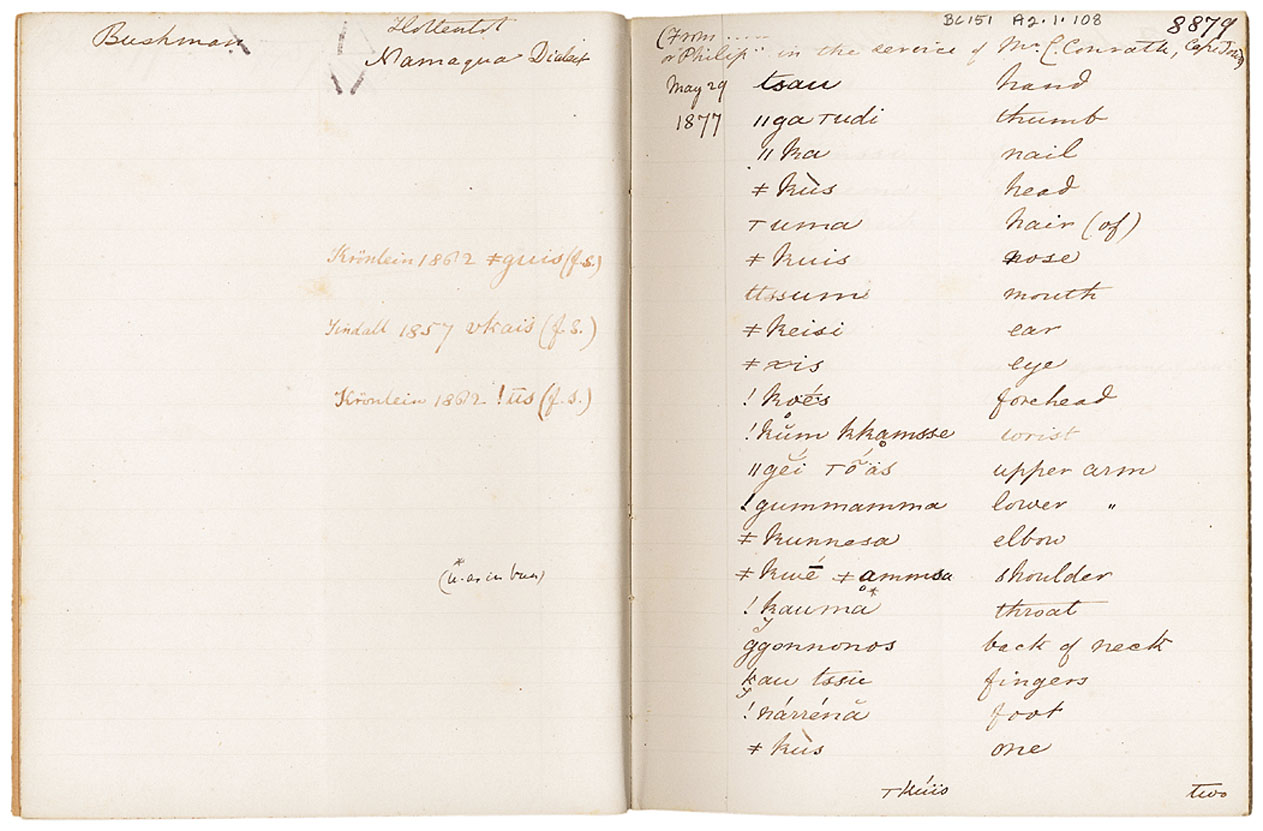 Bushman
Hottentot
Namaqua Dialect
Krönlein 1862 ǂguis (f.s.)
Tindall 1857 vkais (f.s.)
Krönlein 1862 !ūs (f.s.)
BC151 A2.1.108
8879
(From .....
or "Philip" in the service of Mr. C. Conrath, Cape Town)
May 29 tsau hand
1877 ǁga тudi thumb
ǁka nail
ǂkùs head
тuma hair (of)
ǂkuis nose
ttssum mouth
ǂkeisi ear
ǂxis eye
!koés forehead
!kŭm kkamsse wrist
ǁgĕi тõäs upper arm
!gummamma lower "
ǂkunnesa elbow
ǂkwé ǂammsa shoulder
!kauma* throat
ggonnonos back of neck
kau tssu fingers
!nárrénă foot
ǂkùs one
тkúis two